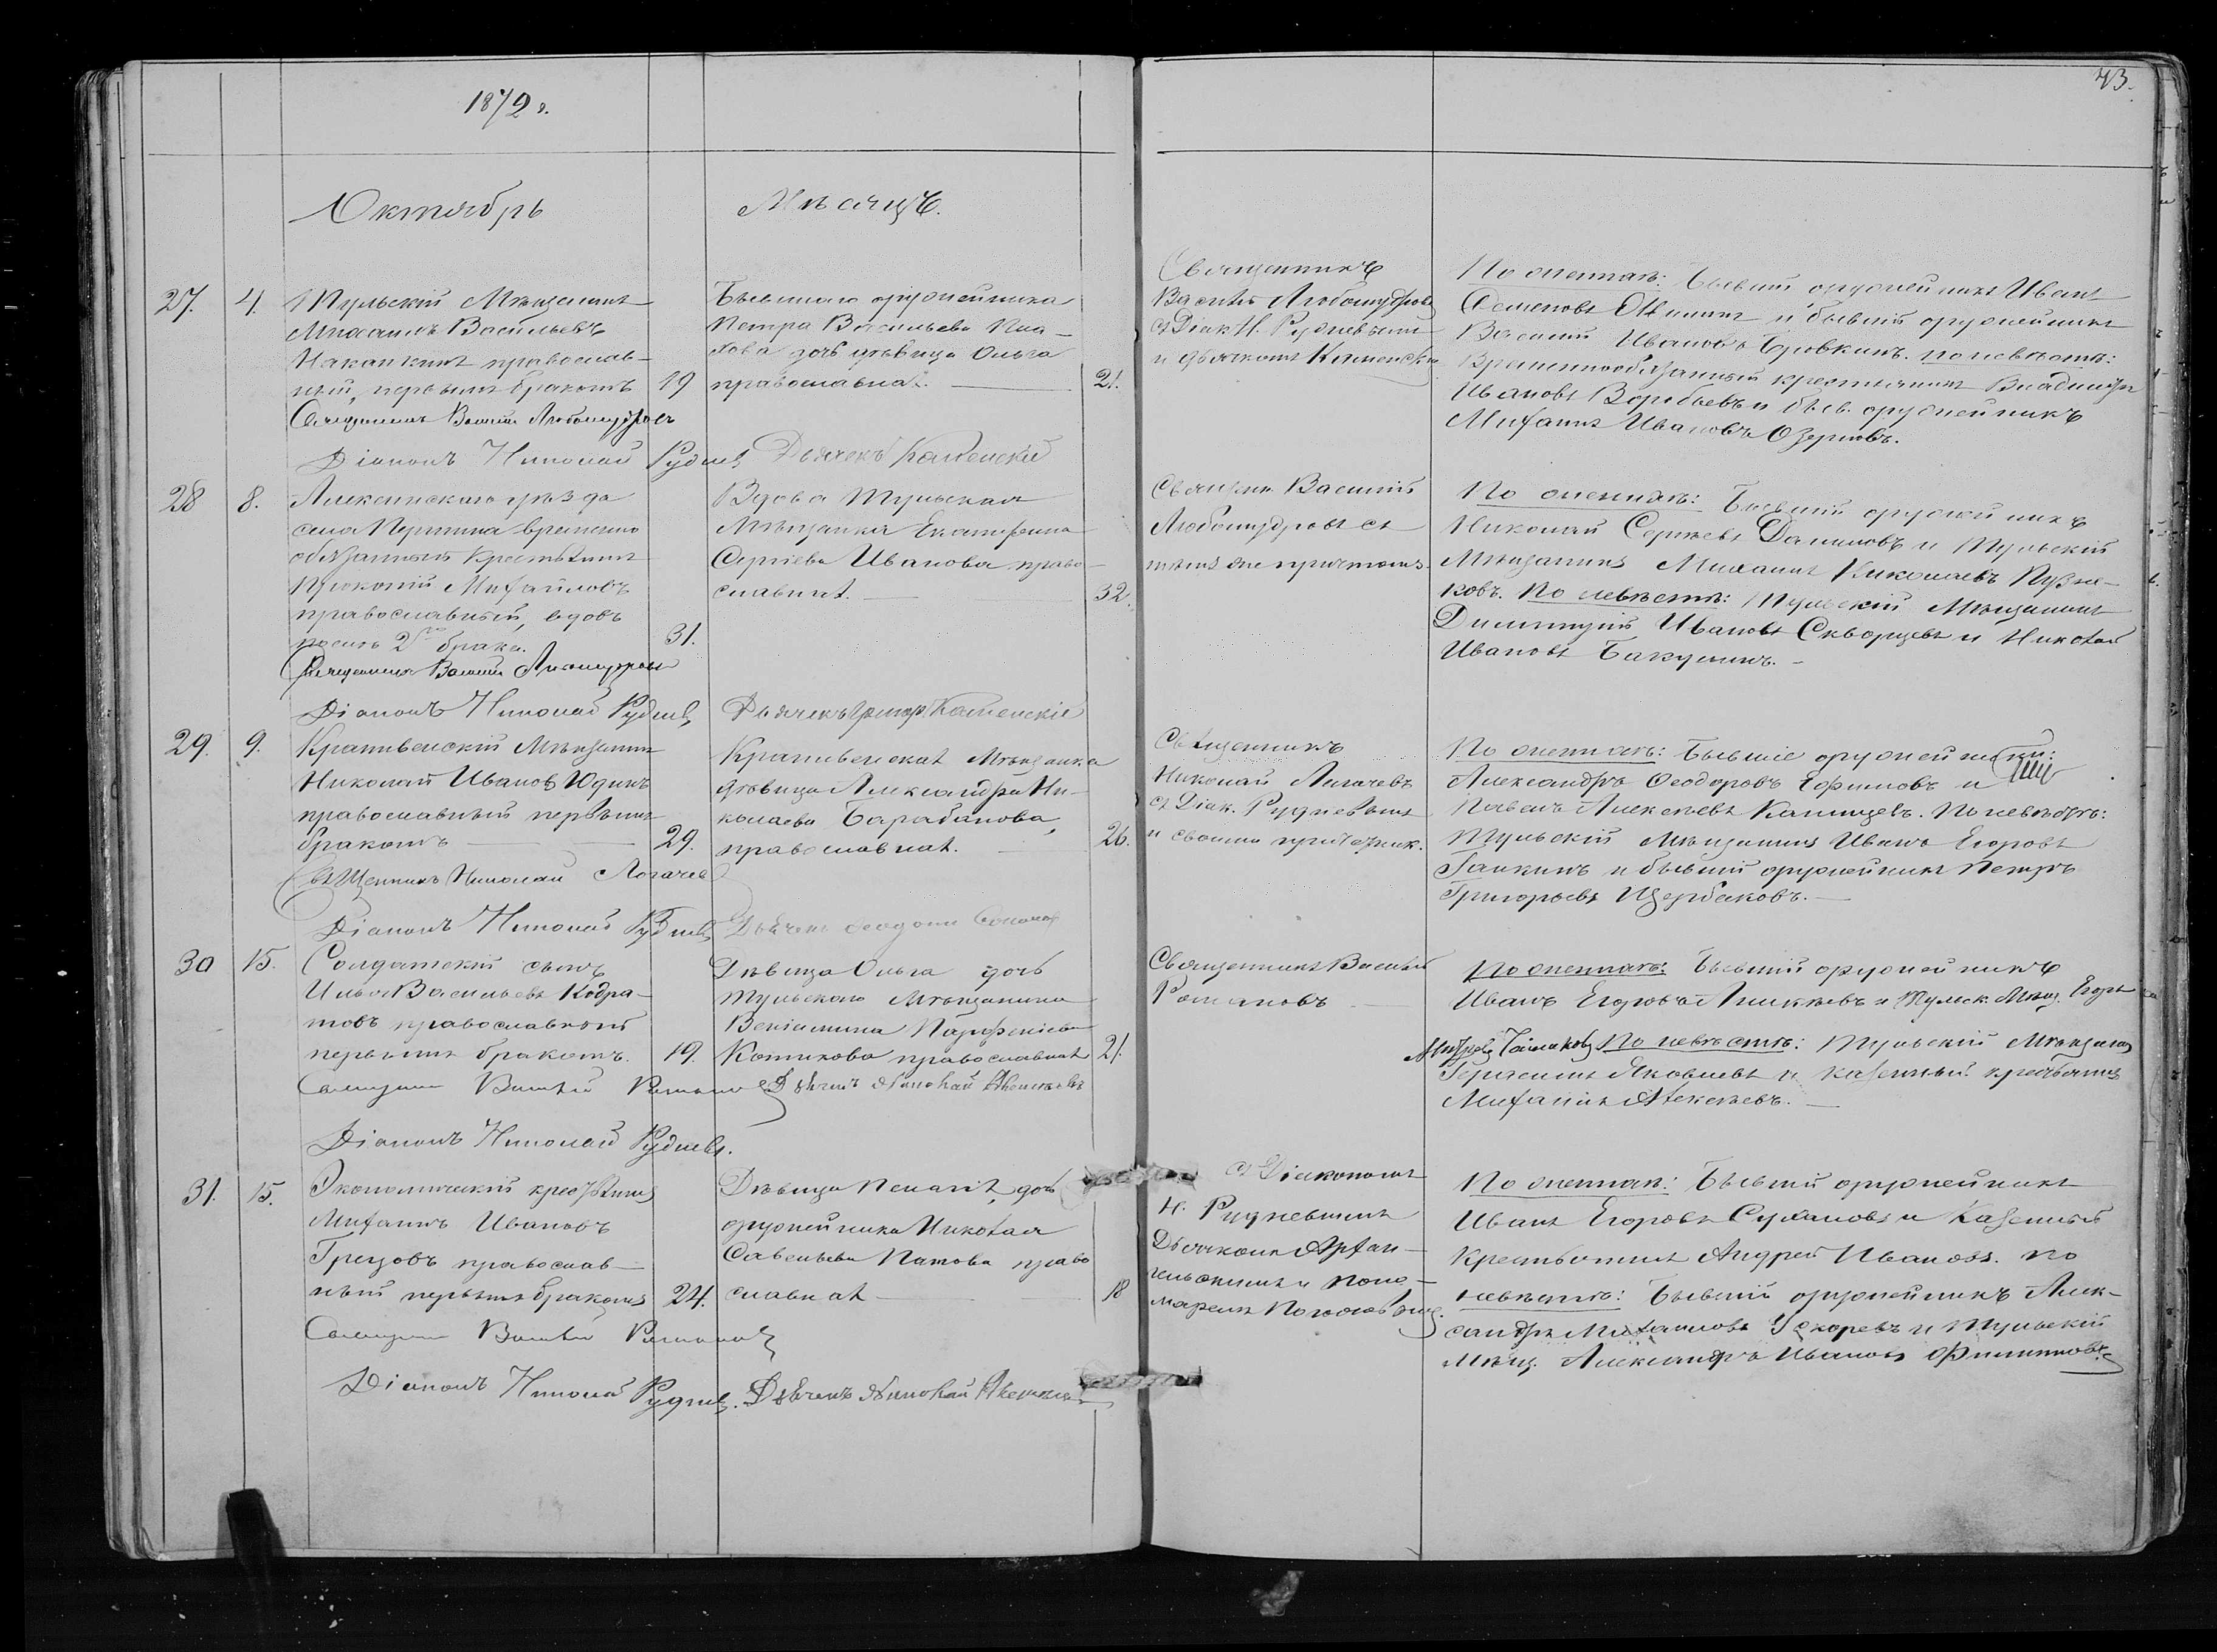 1872 г.
43.
Октябрь
Мѣсяцъ.
27.
4.
Тульскій Мѣщанинъ
Михаилъ Васильевъ
православ-
ный, первымъ бракомъ
19
Священникъ Василій Любомудровъ
Діаконъ Николай Рудневъ
Бывшаго оружейника
Петра Васильева
дочь дѣвица Ольга
православная.
21.
Дьячекъ Каменскій
Священникъ
Василій Любомудровъ
съ Діак. Н. Рудневымъ
и дьячкомъ Каменскимъ
По женихѣ: Бывшій оружейникъ Иванъ
Семеновъ и бывшій оружейникъ
Василій Ивановъ Бровкинъ. по невѣстѣ:
Временнообязанный крестьянинъ Владиміръ
Ивановъ Воробьевъ и бывш. оружейникъ
Михаилъ Ивановъ Озеровъ.
28
8.
Алексинскаго уѣзда
села временно
обязанный крестьянинъ
Прокопій Михайловъ
православный, вдовъ
послѣ 2го брака.
31.
Священникъ Василій Любомудровъ
Діаконъ Николай Рудневъ
Вдова Тульская
Мѣщанка Екатерина
Сергіева Иванова право-
славная.
32.
Дьячекъ Григор. Каменскій
Священ. Василій
Любомудровъ съ
тѣмъ же причтомъ.
По женихѣ: Бывшій оружейникъ
Николай Сергѣевъ Даниловъ и Тульскій
Мѣщанинъ Михаилъ Николаевъ Пузы-
ковъ. По невѣстѣ: Тульскій Мѣщанинъ
Димитрій Ивановъ Скворцевъ и Николай
Ивановъ Бакулинъ.
29.
9.
Крапивенскій Мѣщанинъ
Николай Ивановъ Юдинъ
православный первымъ
бракомъ
29.
Священникъ Николай Логачев
Діаконъ Николай Рудневъ
Крапивенская Мѣщанка
дѣвица Александра Ни-
колаева Барабанова,
православная.
26.
Дьячекъ Соколов
Священникъ
Николай Лагачевъ
съ Діак. Рудневымъ
и своимъ причетник.
По женихѣ: Бывшіе оружейники:
Александръ Ѳеодоровъ Ефимовъ и
Павелъ Алексѣевъ По невѣстѣ:
Тульскій Мѣщанинъ Иванъ Егоровъ
Галкинъ и бывшій оружейникъ Петръ
Григорьевъ Щербаковъ.
30
15.
Солдатскій сынъ
Илья Васильевъ Кодра-
товъ православный
первымъ бракомъ.
19.
Священникъ Василій Романовъ
Діаконъ Николай Рудневъ.
Дѣвица Ольга дочь
Тульскаго Мѣщанина
Веніамина Парфеніева
Котикова православная
21.
Дьячекъ Николай
Священникъ Василій
Романовъ
По женихѣ: Бывшій оружейникъ
Иванъ Егоровъ и Тульск. Мѣщ. Егоръ
По невѣстѣ: Тульскій Мѣщанинъ
Герасимъ Яковлевъ и казенный крестьянинъ
Михаилъ Алексѣевъ.
31.
15.
Экономическій крестьянинъ
Михаилъ Ивановъ
Грецовъ православ-
ный первымъ бракомъ
24.
Священникъ Василій Романовъ
Діаконъ Николай Рудневъ.
Дѣвица Пелагія, дочь
оружейника Николая
Савельева Патова право
славная
18
Дьячекъ Николай
съ Діакономъ
Н. Рудневымъ
Дьячкомъ Архан-
гельскимъ и поно-
маремъ
По женихѣ: Бывшій оружейникъ
Иванъ Егоровъ Сухановъ и Казенный
Крестьянинъ Андрей Ивановъ. По
невѣстѣ: Бывшій оружейникъ Алек-
сандръ Михаиловъ и Тульскій
Мѣщ. Александръ Ивановъ Филипповъ.